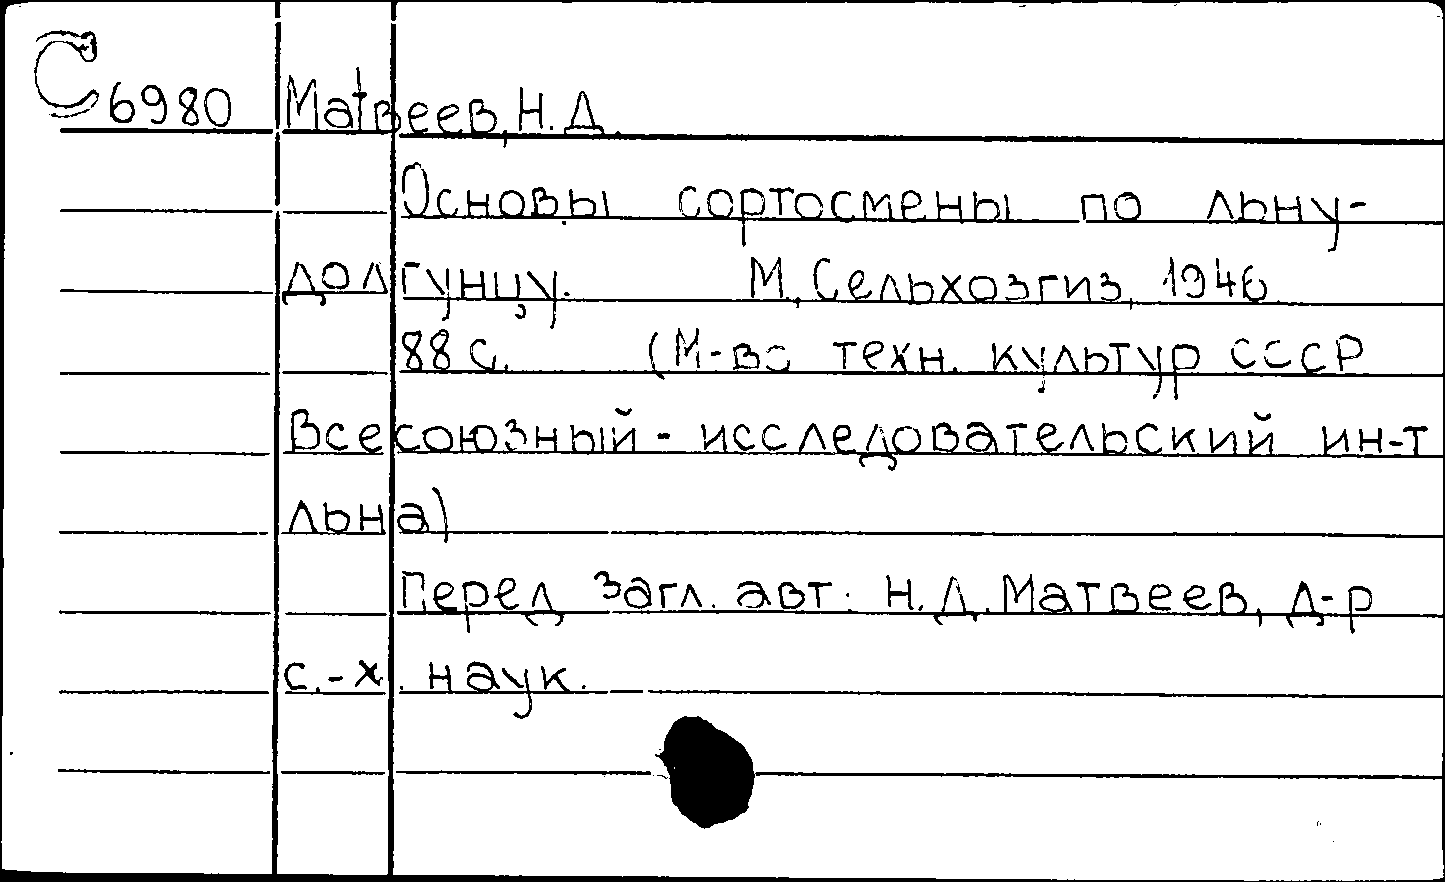 С 6980 Матвеев, Н. Д.
Основы сортосмены по льну-
долгунцу. М., Сельхозгиз, 1946
88 с. (М-во техн. культур СССР
Всесоюзный - исследовательский ин-т
льна)
Перед загл. авт. Н. Д. Матвеев, д-р
с.-х. наук.